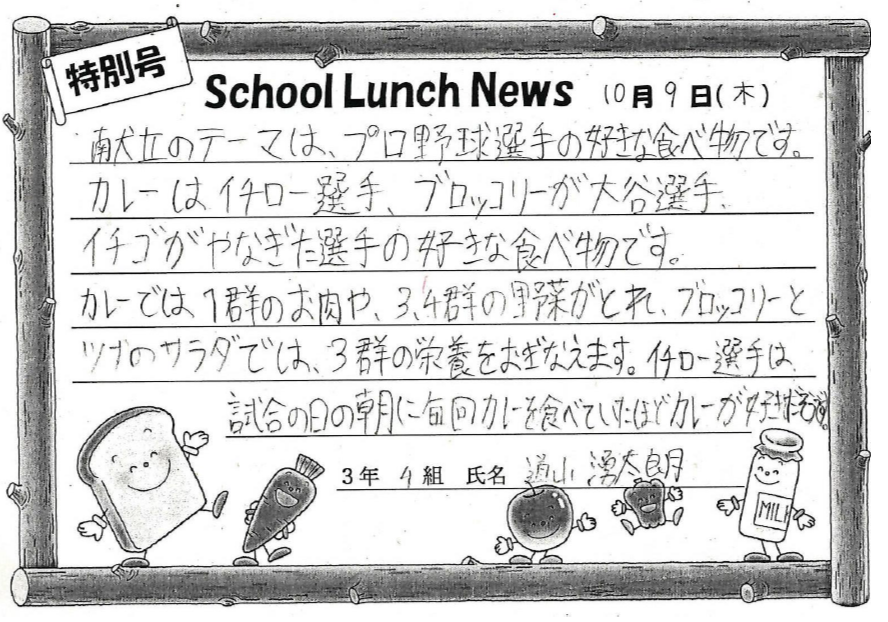 特別号
School Lunch News 10月9日(木)
献立のテーマは、プロ野球選手の好きな食べ物です。
カレーはイチロー選手、ブロッコリーが大谷選手、
イチゴがやなぎた選手の好きな食べ物です。
カレーでは1群のお肉や、3、4群の野菜がとれ、ブロッコリーと
ツナのサラダでは、3群の栄養をおぎなえます。イチロー選手は
試合の日の朝に毎回カレーを食べていたほどカレーが好きだそうです。
3年4組 氏名 道山 湧太朗
MILK